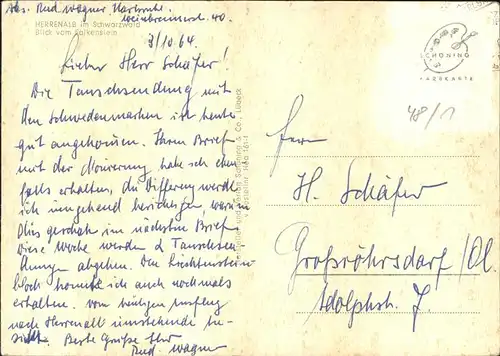 Abs. Rud. Wagner, Karlsruhe
Weinbrennerstr. 40.
HERRENALB im Schwarzwald
Blick vom Falkenstein
3/10.64
Lieber Herr Schäfer!
Die Tauschsendung mit
den Schwedenmarken ist heute
gut angekommen. Ihren Brief
mit der Notierung habe ich eben-
falls erhalten, die Differenz werde
ich umgehend berichtigen,
dies geschah im nächsten Brief
diese Woche werden 2 Tauschsen-
dungen abgehen. Den Liechtenstein-
block konnte ich auch nochmals
erhalten. Vom heutigen Ausflug
nach Herrenalb umstehende An-
sicht. Beste Grüße Ihr
Rud. Wagner
Schöning & Co., Lübeck
SCHÖNING
48/1
Herrn
H. Schäfer
Großröhrsdorf/Ol.
Adolphstr. 7.